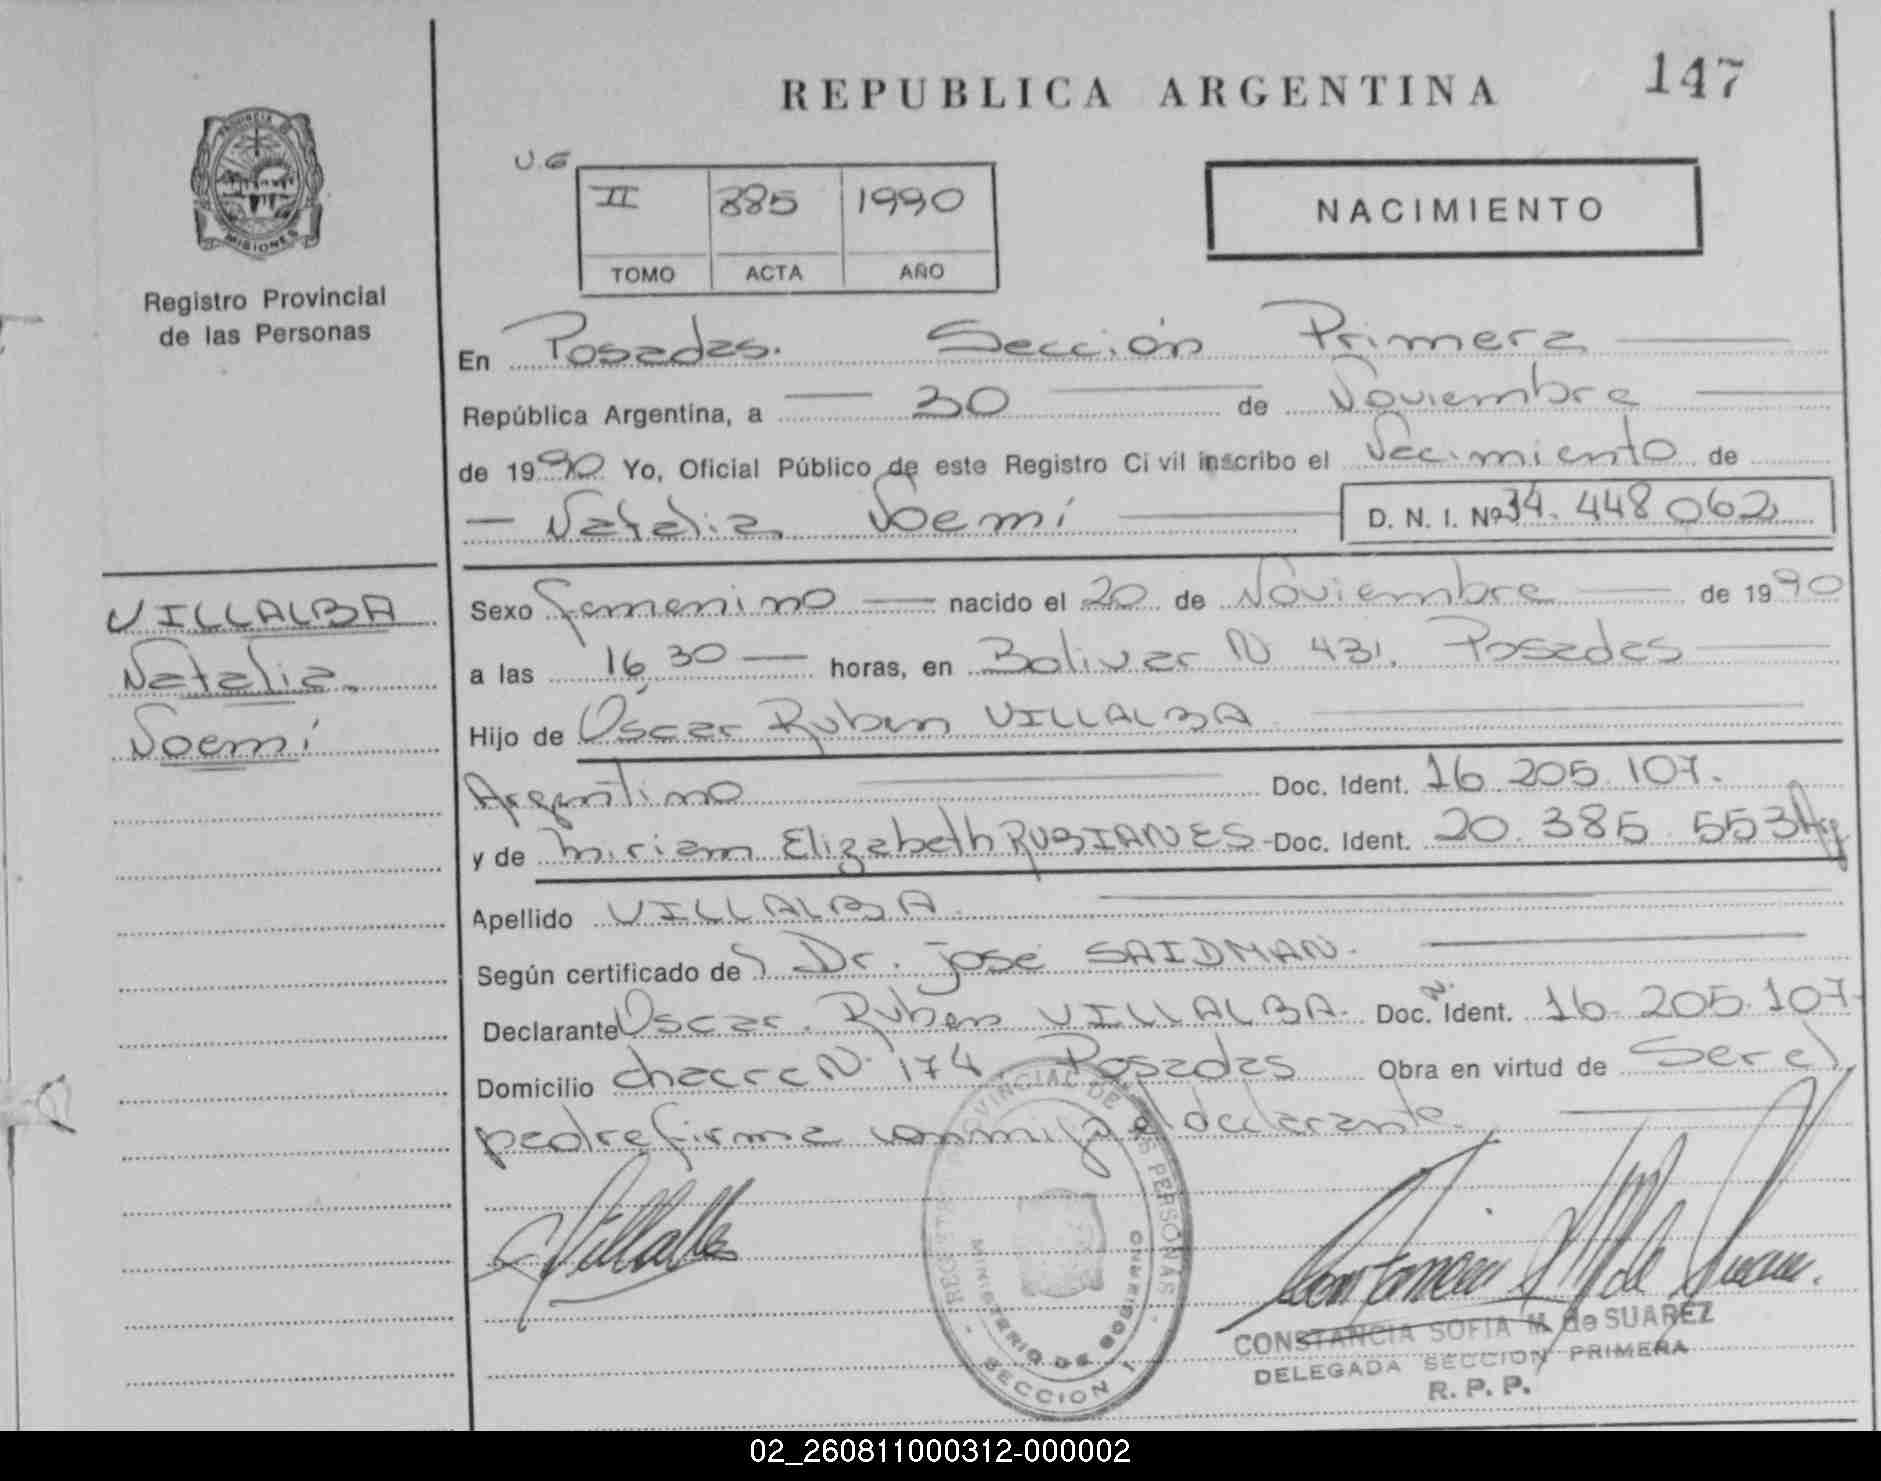 REPUBLICA ARGENTINA
147
PROVINCIA DE
MISIONES
Registro Provincial
de las Personas
U.G
II 385 1990
TOMO ACTA AÑO
NACIMIENTO
En Posadas. Sección Primera
República Argentina, a 30 de Noviembre
de 1990 Yo, Oficial Público de este Registro Civil inscribo el Nacimiento de
Natalia Noemí D. N. I. Nº 34.448062
VILLALBA
Natalia
Noemí
Sexo femenino nacido el 20 de Noviembre de 1990
a las 16,30 horas, en Bolivar N 431. Posadas
Hijo de Oscar Ruben VILLALBA
Argentino Doc. Ident. 16.205.107.
y de Miriam Elizabeth RUBIANES - Doc. Ident. 20.385.553 Arg
Apellido VILLALBA
Según certificado de Dr. José SAIDMAN.
Declarante Oscar Ruben VILLALBA. Doc. Ident. 16.205.107
Domicilio chacra N. 174 Posadas Obra en virtud de Ser el
padre firma conmigo el declarante.
REGISTRO PROVINCIAL DE LAS PERSONAS
MINISTERIO DE GOBIERNO
SECCION 1
CONSTANCIA SOFIA M. de SUAREZ
DELEGADA SECCION PRIMERA
R. P. P.
02_260811000312-000002